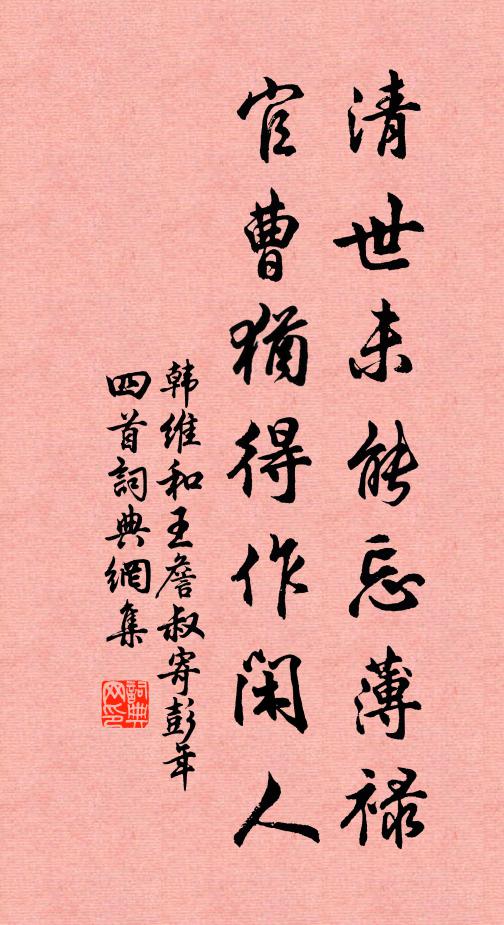 清世未能忘薄禄
官曹猶得作閑人
韩維和王詹叔寄彭年
四首詞典網集
詞典网印